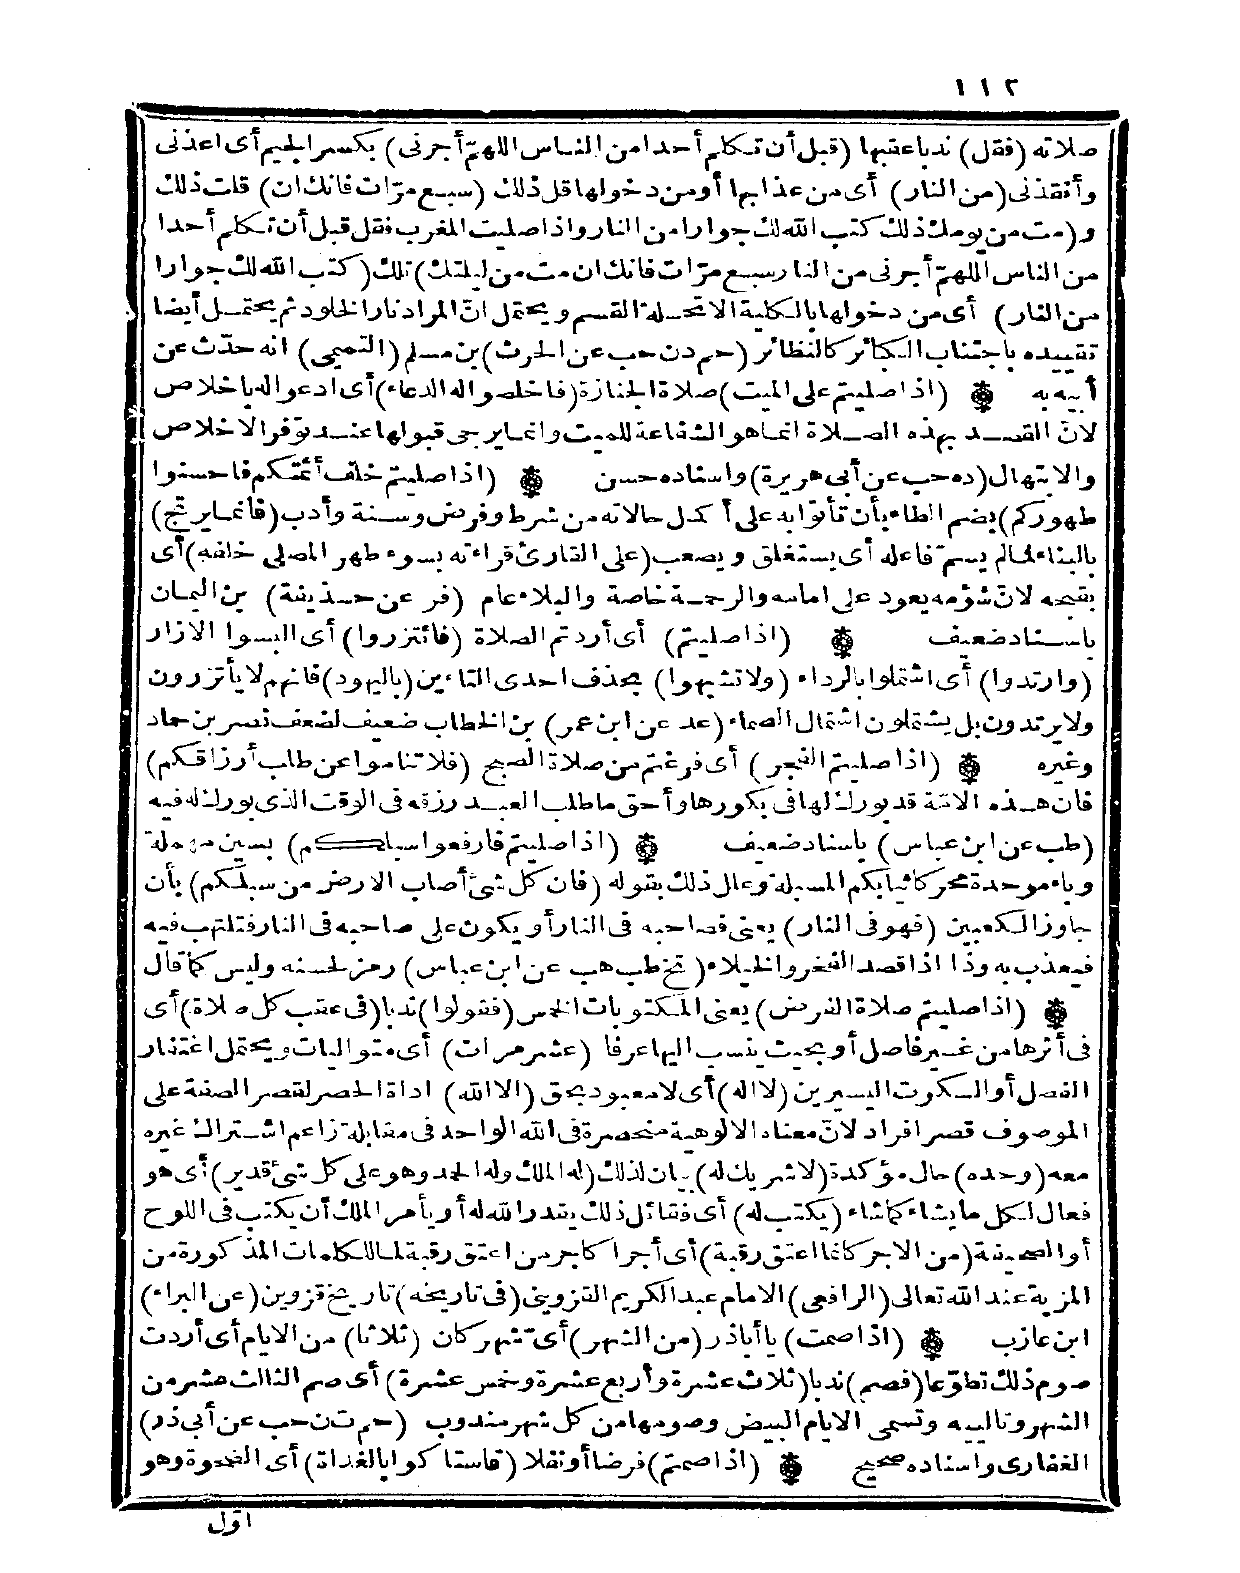 ١١٢
صلاته (فقل) ندبا عقبها (قبل أن تكلم أحدا من الناس اللهمّ أجرنى) بكسر الجيم أى اعذنى
وأنقذنى (من النار) أى من عذابها أو من دخولها قل ذلك (سبع مرّات فانك ان) قلت ذلك
و(مت من يومك ذلك كتب الله لك جوارا من النار واذا صليت المغرب فقل قبل أن تكلم أحدا
من الناس اللهمّ أجرنى من النار سبع مرّات فانك ان مت من ليلتك) تلك (كتب الله لك جوارا
من النار) أى من دخولها بالكلية الا تحلة القسم ويحتمل انّ المراد نار الخلود ثم يحتمل أيضا
تقييده باجتناب الكبائر كالنظائر (حم د ن حب عن الحرث) بن مسلم (التميمى) انه حدّث عن
أبيه به ۞ (اذا صليتم على الميت) صلاة الجنازة (فاخلصوا له الدعاء) أى ادعوا له باخلاص
لانّ القصد بهذه الصلاة انما هو الشفاعة للميت وانما يرجى قبولها عند توفر الاخلاص
والابتهال (د ه حب عن أبى هريرة) واسناده حسن ۞ (اذا صليتم خلف أئمتكم فاحسنوا
طهوركم) بضم الطاء بأن تأتوا به على أكمل حالاته من شرط وفرض وسنة وأدب (فانما يرتج)
بالبناء لما لم يسمّ فاعله أى يستغلق ويصعب (على القارئ قراءته بسوء طهر المصلى خلفه) أى
بقبحه لانّ شؤمه يعود على امامه والرحمة خاصة والبلاء عام (فر عن حذيفة) بن اليمان
باسناد ضعيف ۞ (اذا صليتم) أى أردتم الصلاة (فائتزروا) أى البسوا الازار
(وارتدوا) أى اشتملوا بالرداء (ولا تشبهوا) بحذف احدى التاءين (باليهود) فانهم لا يأتزرون
ولا يرتدون بل يشتملون اشتمال الصماء (عد عن ابن عمر) بن الخطاب ضعيف لضعف نصر بن حماد
وغيره ۞ (اذا صليتم الفجر) أى فرغتم من صلاة الصبح (فلا تناموا عن طلب أرزاقكم)
فان هذه الامّة قد بورك لها فى بكورها وأحق ما طلب العبد رزقه فى الوقت الذى بورك له فيه
(طب عن ابن عباس) باسناد ضعيف ۞ (اذا صليتم فارفعوا سبلكم) بسين مهملة
وباء موحدة محركا ثيابكم المسبلة وعلل ذلك بقوله (فان كل شئ أصاب الارض من سبلكم) بأن
جاوز الكعبين (فهو فى النار) يعنى فصاحبه فى النار أو يكون على صاحبه فى النار فتلتهب فيه
فيعذب به وذا اذا قصد الفخر والخيلاء (تخ طب هب عن ابن عباس) رمز لحسنه وليس كما قال
۞ (اذا صليتم صلاة الفرض) يعنى المكتوبات الخمس (فقولوا) ندبا (فى عقب كل صلاة) أى
فى أثرها من غير فاصل أو بحيث ينسب اليها عرفا (عشر مرات) أى متواليات ويحتمل اغتفار
الفصل أو السكوت اليسيرين (لا اله) أى لا معبود بحق (الا الله) اداة الحصر لقصر الصفة على
الموصوف قصر افراد لانّ معناه الالوهية منحصرة فى الله الواحد فى مقابلة زاعم اشتراك غيره
معه (وحده) حال مؤكدة (لا شريك له) بيان لذلك (له الملك وله الحمد وهو على كل شئ قدير) أى هو
فعال لكل ما يشاء كما شاء (يكتب له) أى فقائل ذلك يقدر الله له أو يأمر الملك أن يكتب فى اللوح
أو الصحيفة (من الاجر كأنما اعتق رقبة) أى أجرا كاجر من اعتق رقبة لما للكلمات المذكورة من
المزية عند الله تعالى (الرافعى) الامام عبد الكريم القزوينى (فى تاريخه) تاريخ قزوين (عن البراء)
ابن عازب ۞ (اذا صمت) يا أباذر (من الشهر) أى شهر كان (ثلاثا) من الايام أى أردت
صوم ذلك تطوّعا (فصم) ندبا (ثلاث عشرة وأربع عشرة وخمس عشرة) أى صم الثالث عشر من
الشهر وتالييه وتسمى الايام البيض وصومها من كل شهر مندوب (حم ت ن حب عن أبى ذر)
الغفارى واسناده صحيح ۞ (اذا صمتم) فرضا أو نفلا (فاستاكوا بالغداة) أى الضحوة وهو
اوّل